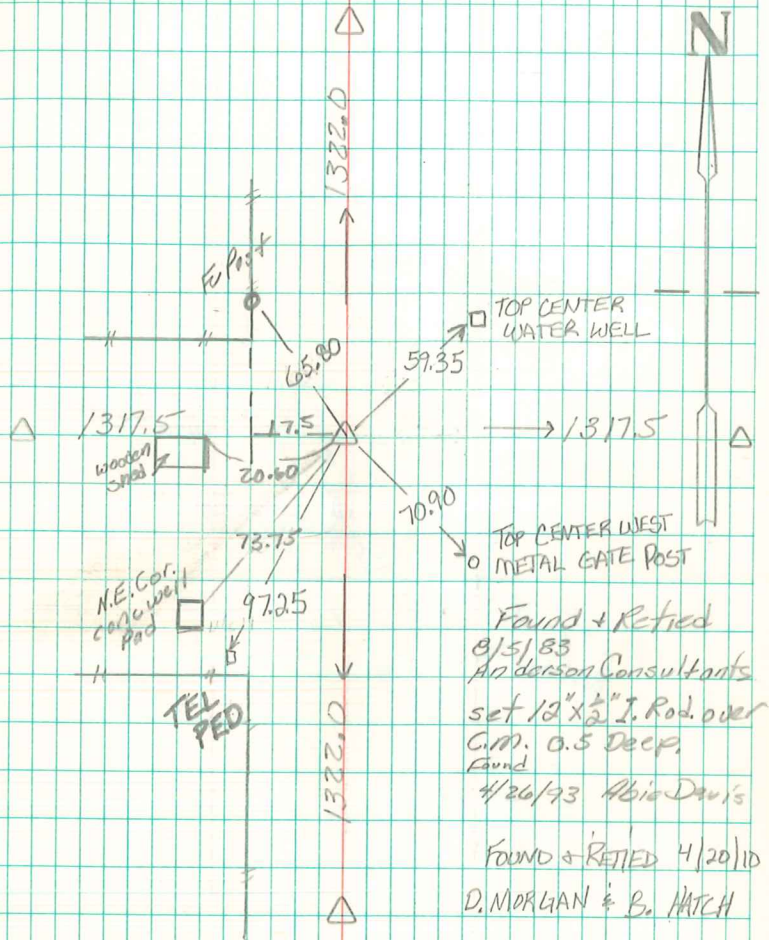 N
1322.0
Fn Post
TOP CENTER
WATER WELL
65.80
59.35
1317.5
17.5
1317.5
wooden
shed
20.60
70.90
TOP CENTER WEST
METAL GATE POST
73.75
N.E. Cor.
conc well
Pad
97.25
TEL
PED
1322.0
Found & Retied
8/5/83
Anderson Consultants
set 12" x 1/2" I. Rod. over
C.M. 0.5 Deep.
Found
4/26/93 Abie Davis
FOUND & RETIED 4/20/10
D. MORGAN & B. HATCH